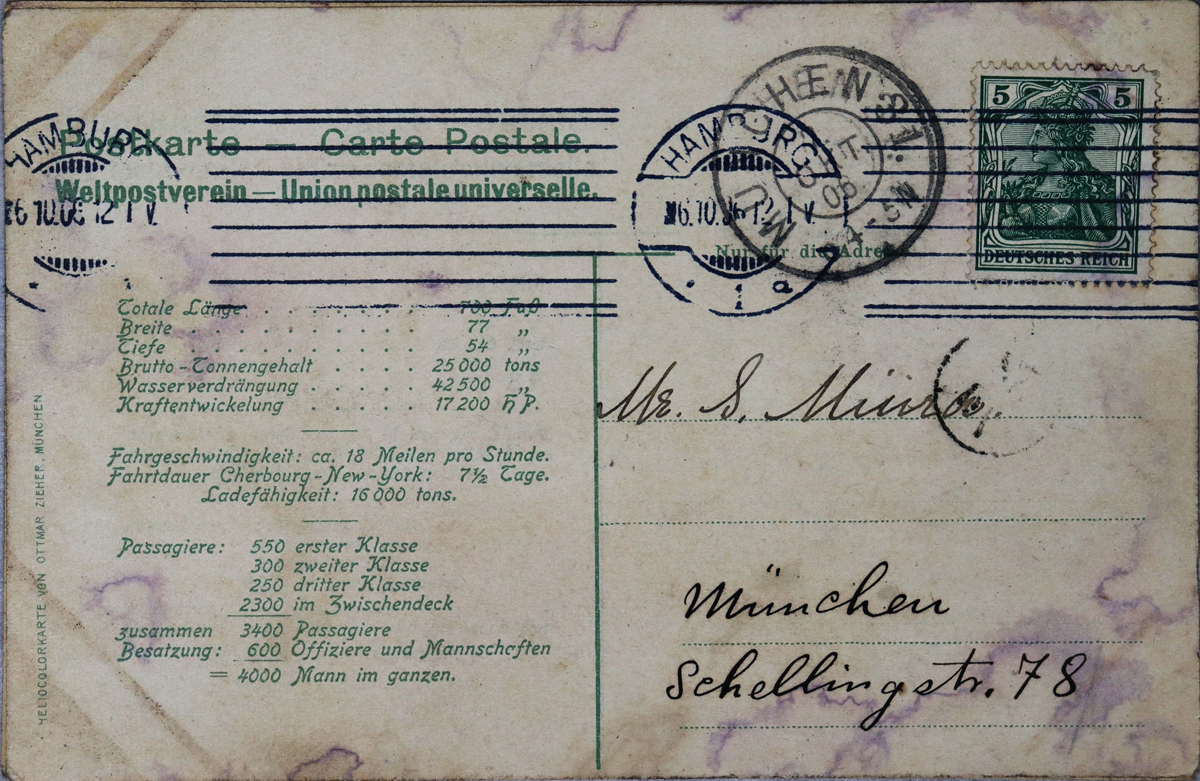 Postkarte — Carte Postale.
Weltpostverein — Union postale universelle.
HAMBURG
12-1 V.
HAMBURG
12-1 V.
1 a
5 5
DEUTSCHES REICH
Nur für die Adresse
Totale Länge . . . . . . . . . 700 Fuß
Breite . . . . . . . . . . . 77 „
Tiefe . . . . . . . . . . . 54 „
Brutto-Tonnengehalt . . . . . 25 000 tons
Wasserverdrängung . . . . . 42 500 „
Kraftentwickelung . . . . . 17 200 HP.
Fahrgeschwindigkeit: ca. 18 Meilen pro Stunde.
Fahrtdauer Cherbourg-New-York: 7½ Tage.
Ladefähigkeit: 16 000 tons.
Passagiere: 550 erster Klasse
300 zweiter Klasse
250 dritter Klasse
2300 im Zwischendeck
zusammen 3400 Passagiere
Besatzung: 600 Offiziere und Mannschaften
= 4000 Mann im ganzen.
HELIOCOLORKARTE VON OTTMAR ZIEHER, MÜNCHEN
Mr. S.
München
Schellingstr. 78